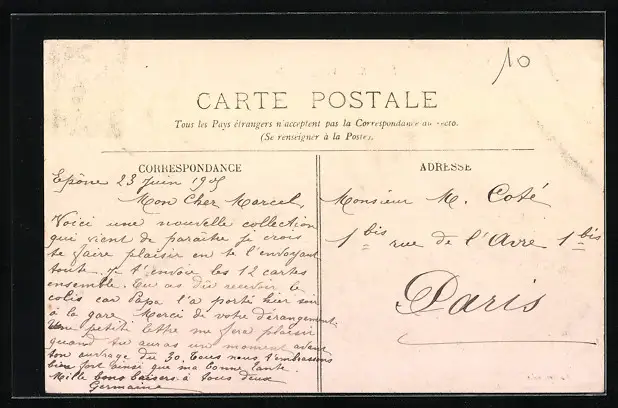 10
CARTE POSTALE
Tous les Pays étrangers n'acceptent pas la Correspondance au recto.
(Se renseigner à la Poste).
CORRESPONDANCE
Epône 23 Juin 1905
Mon Cher Marcel,
Voici une nouvelle collection
qui vient de paraître je crois
te faire plaisir en te l'envoyant
toute. Je t'envoie les 12 cartes
ensemble. Tu as dû recevoir le
colis car Papa l'a porté hier soir
à la gare. Merci de votre dérangement.
Une petite lettre me fera plaisir
quand tu auras un moment avant
ton ouvrage du 30. Tous nous t'embrassons
bien fort ainsi que ma bonne tante.
Mille bons baisers à tous deux
Germaine
ADRESSE
Monsieur M. Coté
1 bis rue de l'Avre 1 bis
Paris